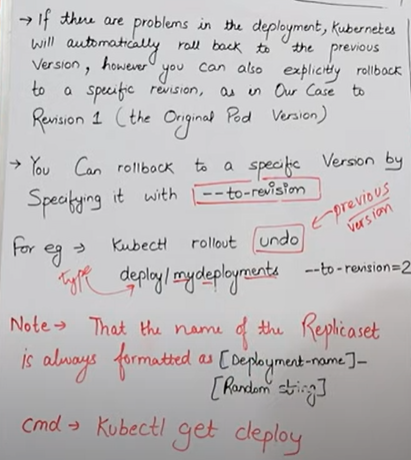 → If there are problems in the deployment, Kubernetes
will automatically roll back to the previous
version, however you can also explicitly rollback
to a specific revision, as in Our Case to
Revision 1 (the Original Pod Version)
→ You Can rollback to a specific Version by
Specifying it with --to-revision
For eg → Kubectl rollout undo ← previous version
type deploy/mydeployments --to-revision=2
Note → That the name of the Replicaset
is always formatted as [Deployment-name]-
[Random string]
cmd → Kubectl get deploy